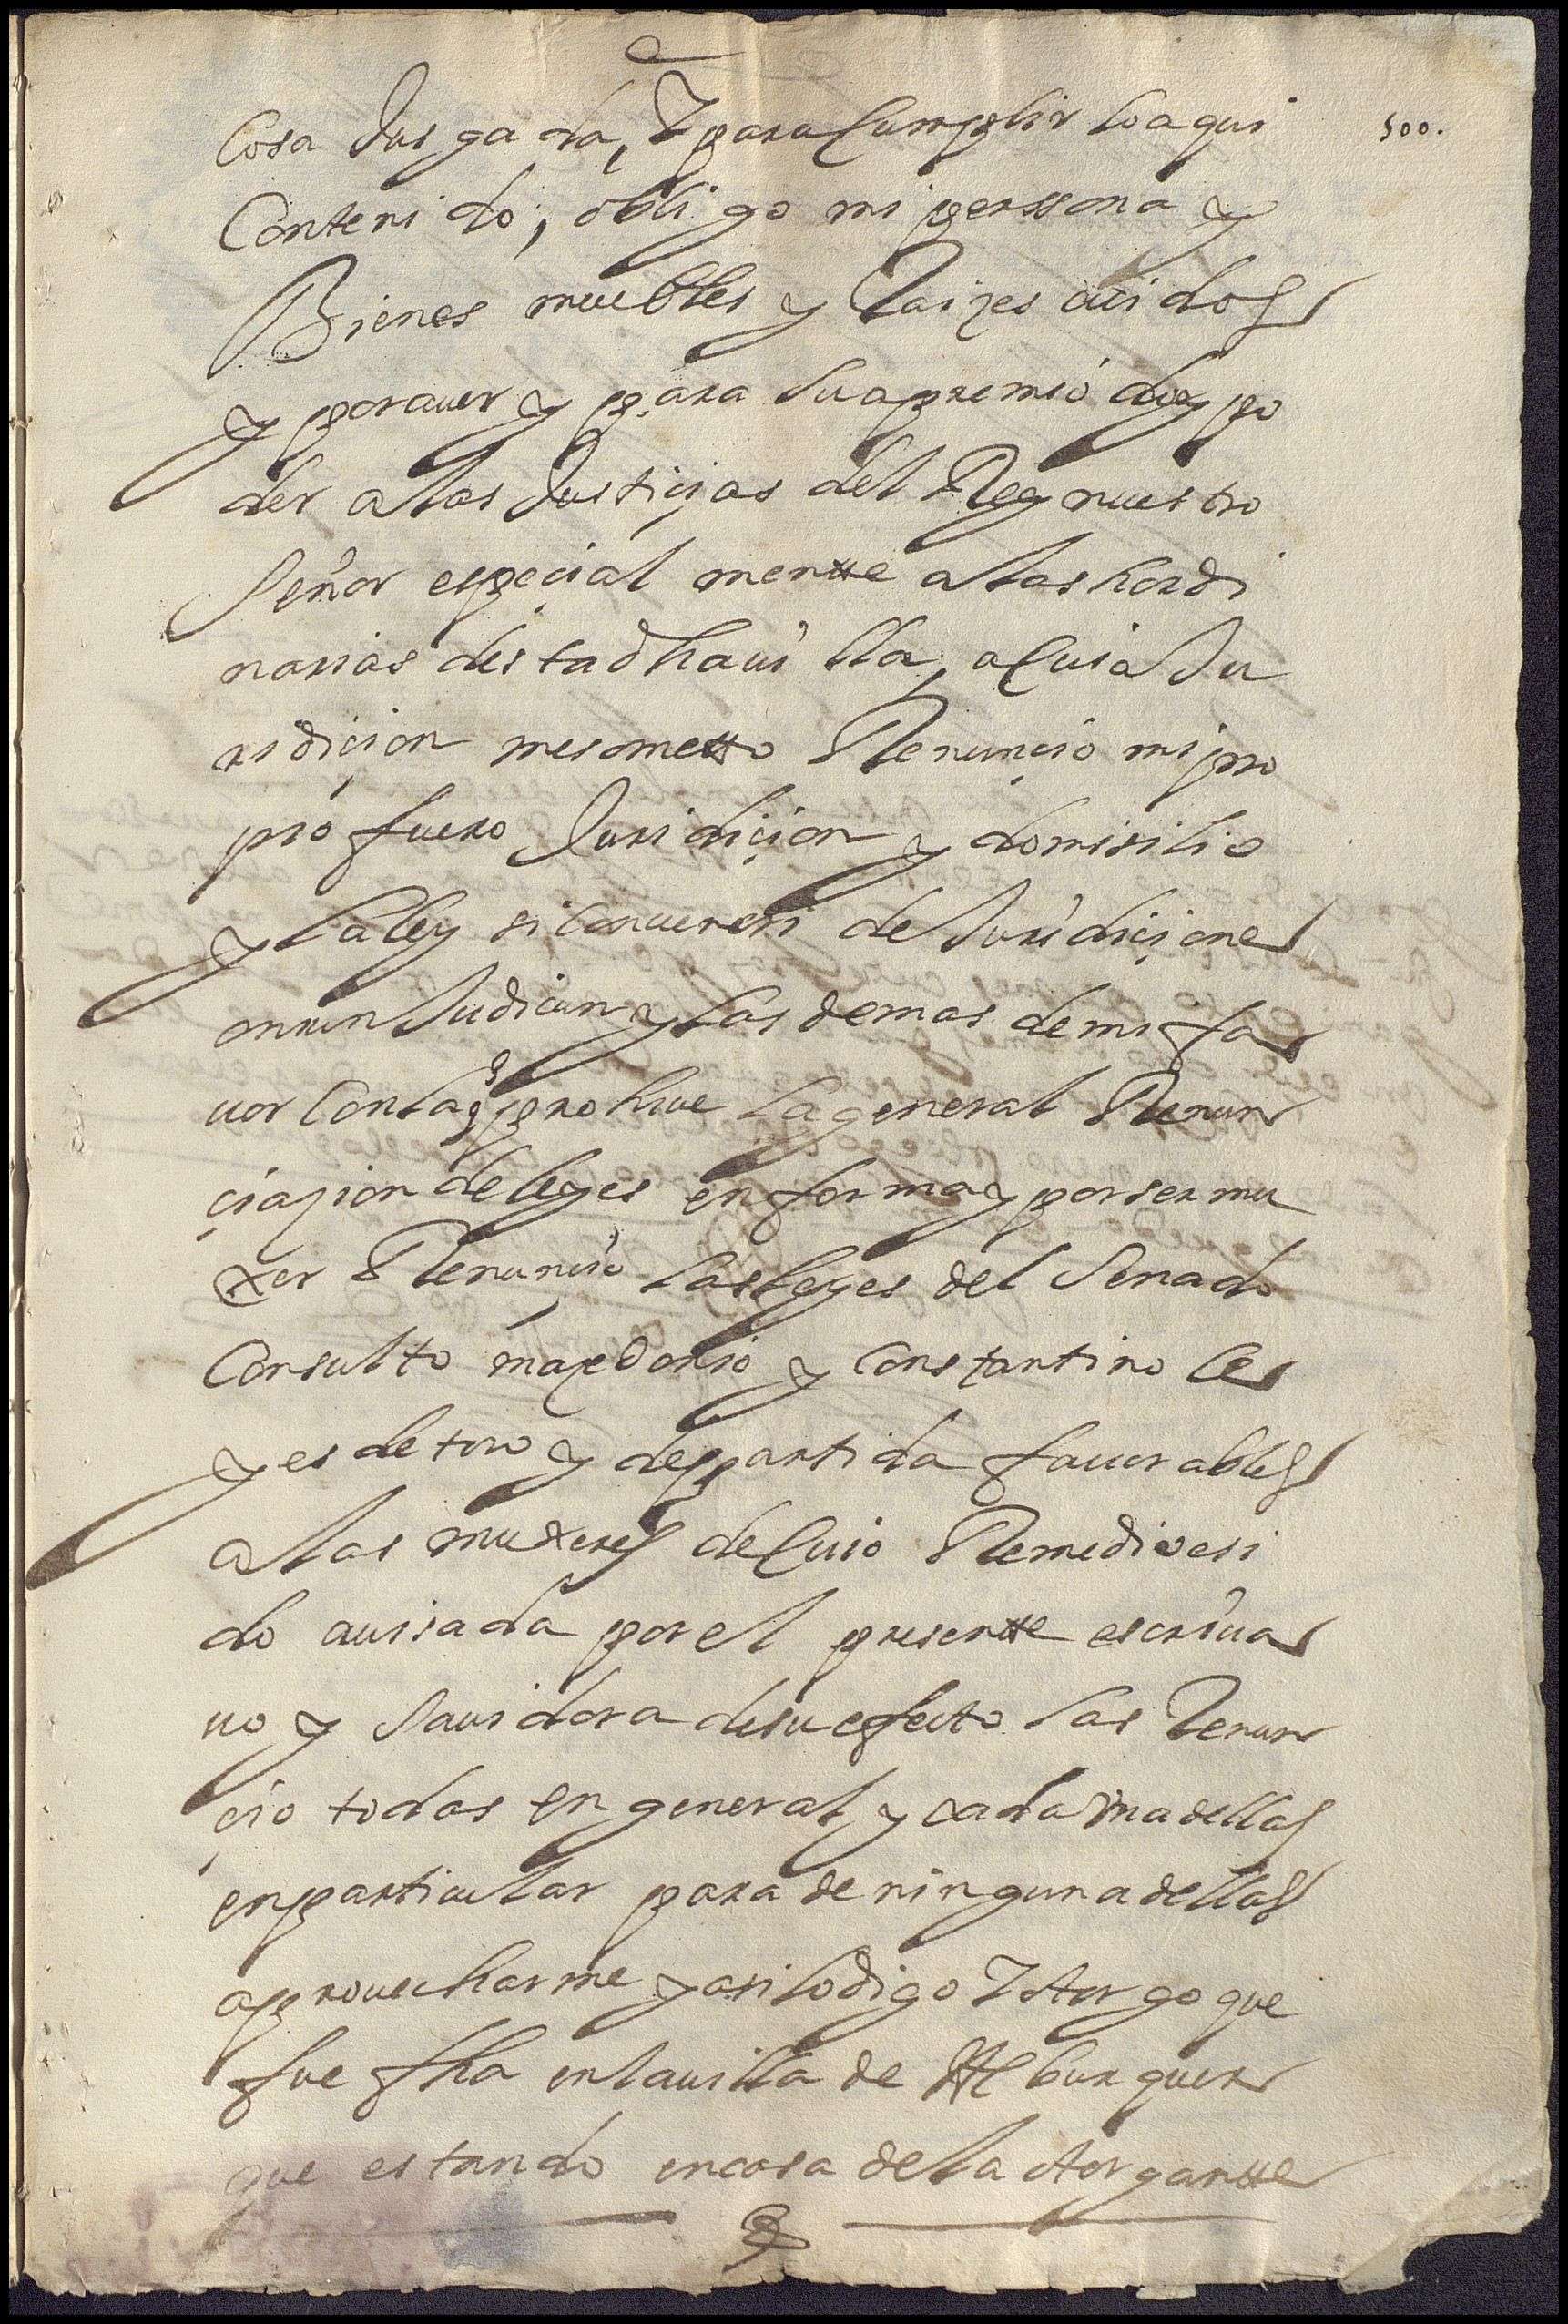 500.
Cosa Jusgada, Y para Cumplir lo aqui
Contenido, obligo mi perssona y
Bienes muebles y Raizes auidos
y por auer y para su apremio doy po
der a las Justiçias del Rey nuestro
Señor espeçial mentte a las hordi
narias desta dha uilla, a Cuia Ju
ridiçion me sometto Renunçio mi pro
pio fuero Juridiçion y domisilio
y la ley si conuenersi de Juridiçione
onrun Judicun y las demas de mi fa
uor Con la q prohiue la general Renun
çiazion de leyes en forma y por ser mu
xer Renunçio las leyes del Senado
Consulto mazedonio y Constantino le
yes de toro y de partida fauorables
a las muxeres de Cuio Remedio e si
do auisada por el presentte escriua
no y Sauidora de su efecto las Renun
çio todas en general y cada una dellas
en particular para de ninguna dellas
aprouecharme y asi lo digo Y otorgo que
fue fha en la uilla de Alburquer
que estando en casa de la otorgantte